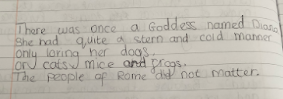 There was once a Goddess named Diana
She had quite a stern and cold manner
only loving her dogs,
or cats, mice and frogs,
The people of Rome did not matter.